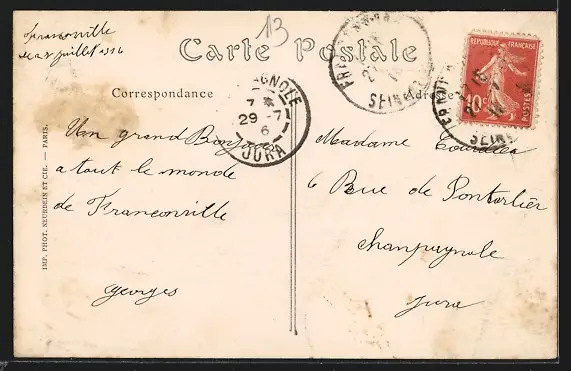 Franconville
le 28 juillet 1916
13
Carte Postale
Correspondance
Adresse
RÉPUBLIQUE FRANÇAISE
10c
POSTES
SEINE
SEINE
7 *
29 -7
6
JURA
Un grand Bonjour
a tout le monde
de Franconville
georges
Madame
6 Rue de Pontarlier
Champagnole
Jura
IMP. PHOT. NEURDEIN ET CIE. — PARIS.